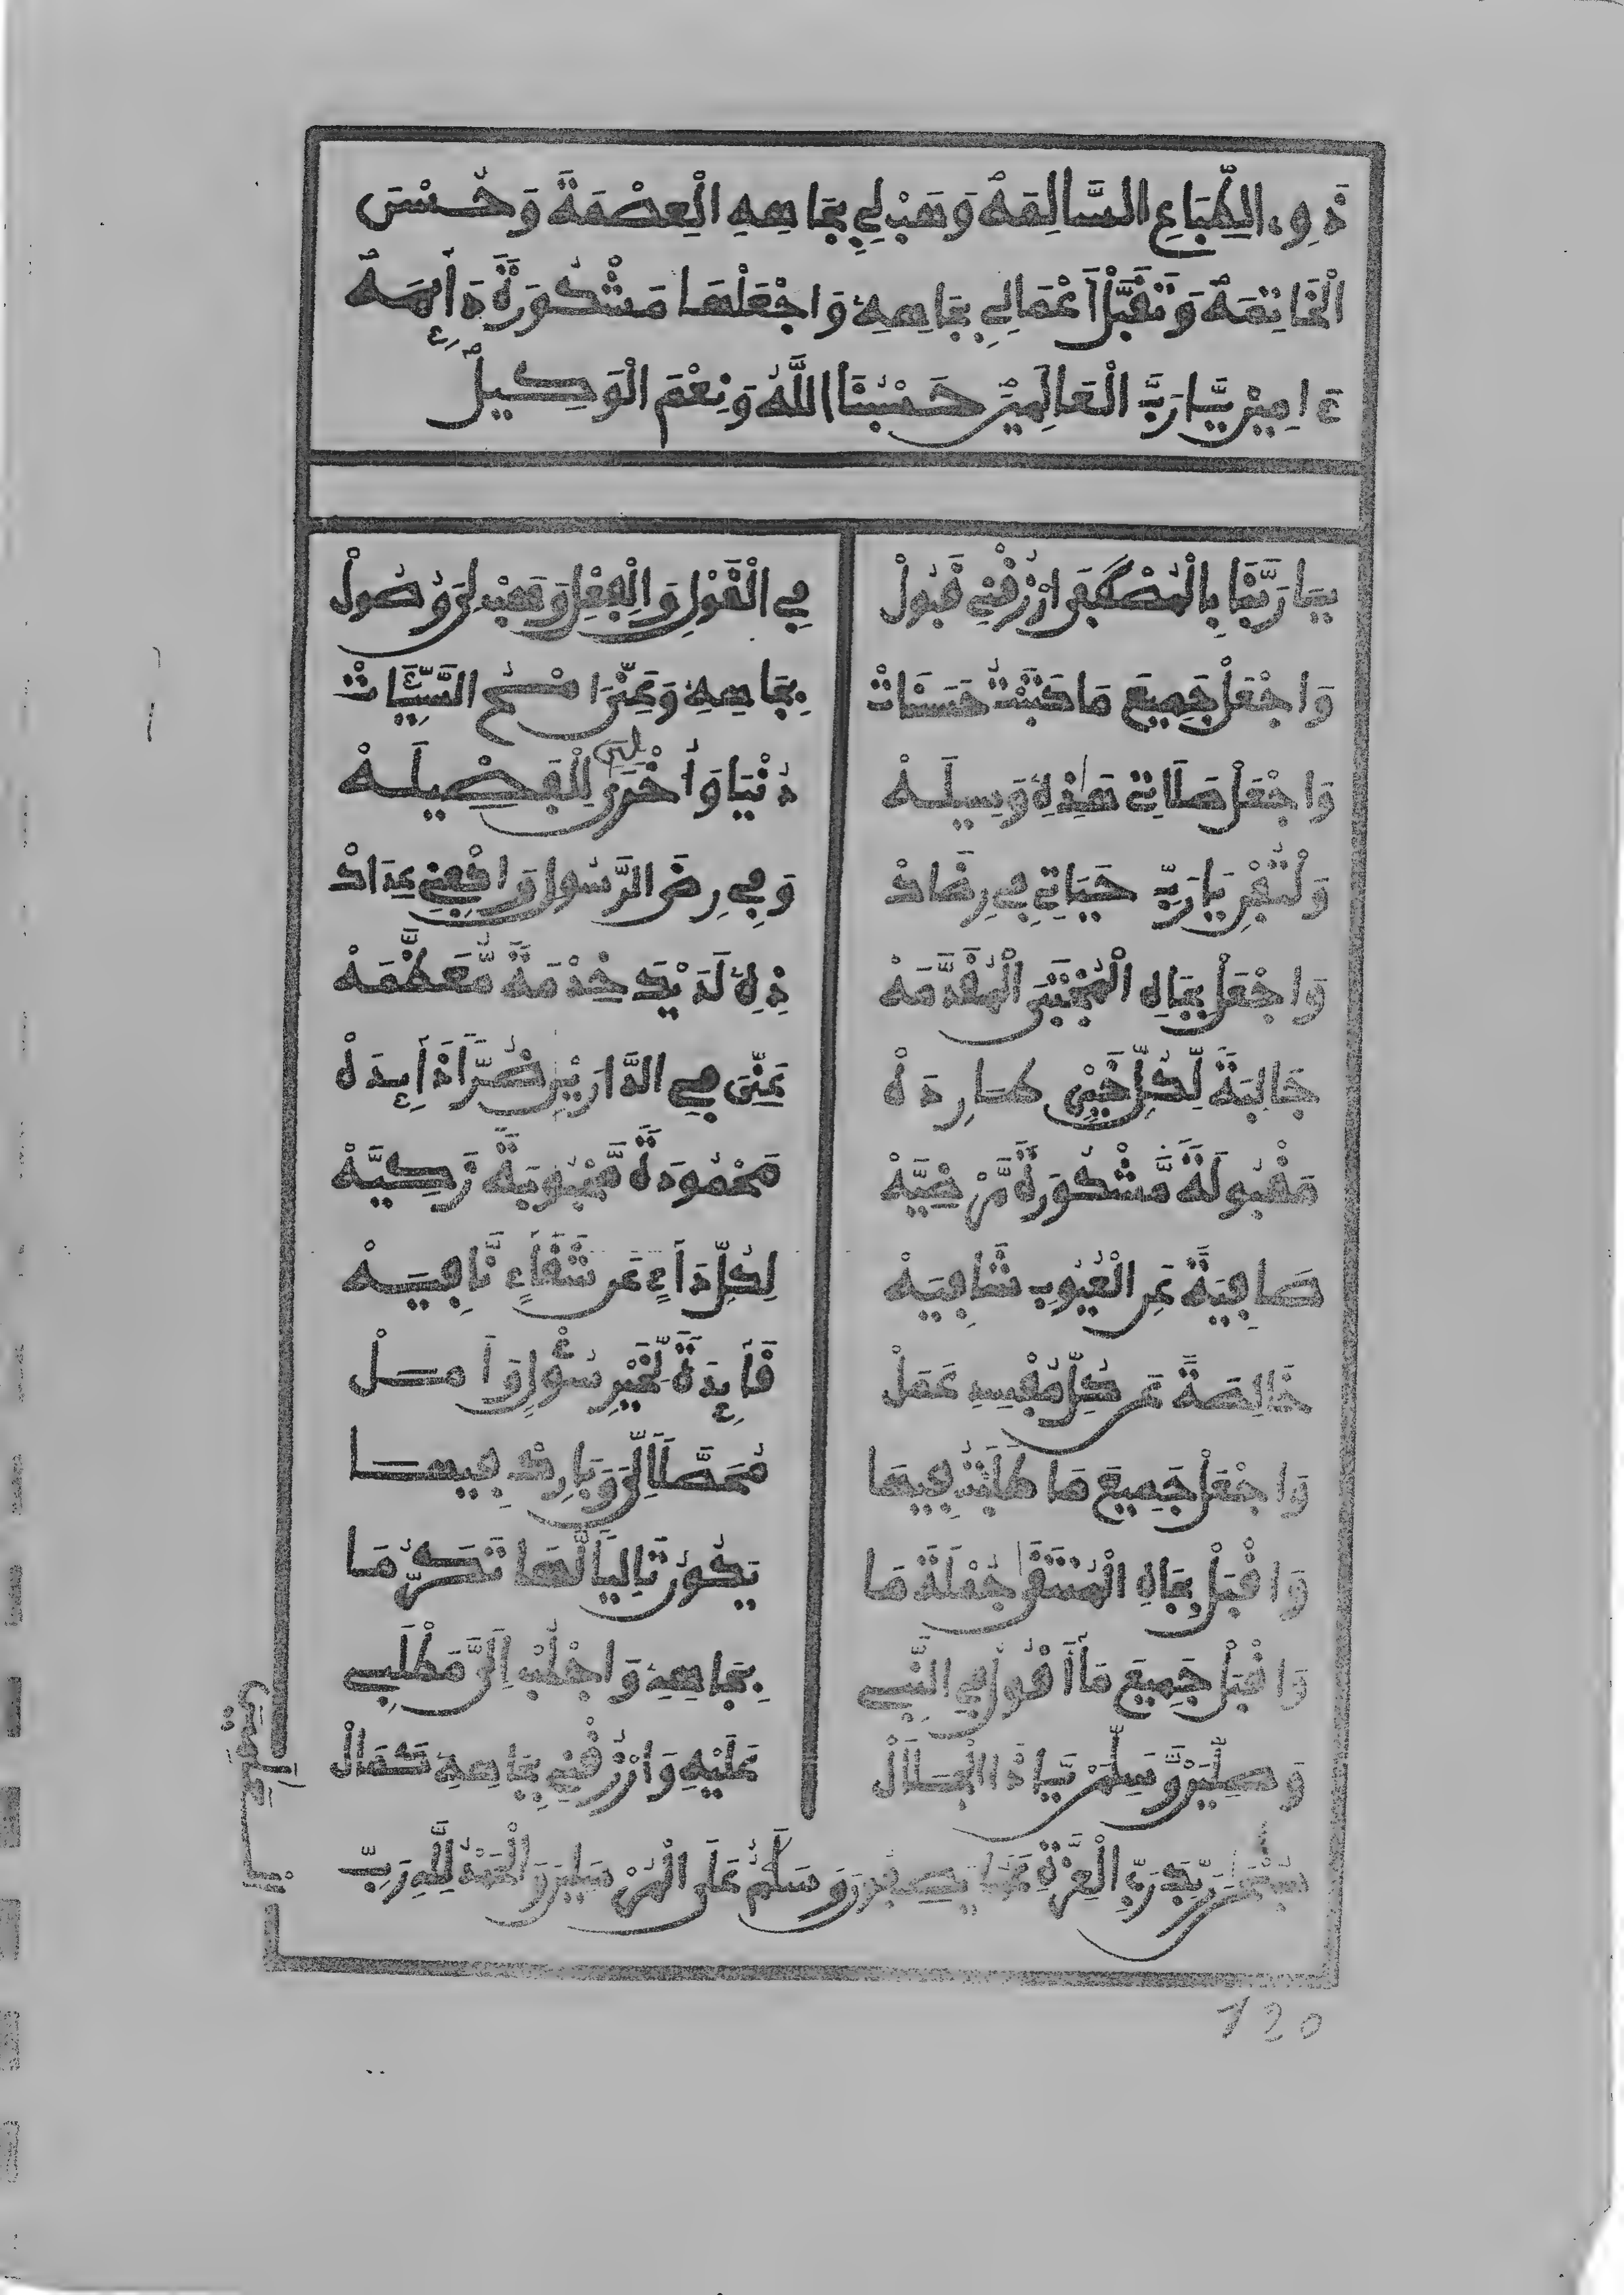 ذَوِي الطِّبَاعِ السَّالِمَهْ وَهَبْ لِي بِجَاهِهِ الْعِصْمَةَ وَحُسْنَ
الْخَاتِمَهْ وَتَقَبَّلْ أَعْمَالِي بِجَاهِهِ وَاجْعَلْهَا مَشْكُورَةً دَائِمَهْ
ءَامِينَ يَا رَبَّ الْعَالَمِينَ حَسْبُنَا اللَّهُ وَنِعْمَ الْوَكِيلُ
يَا رَبَّنَا بِالْمُصْطَفَى ارْزُقْنِي قَبُولْ فِي الْقَوْلِ وَالْفِعْلِ وَهَبْ لِي وُصُولْ
وَاجْعَلْ جَمِيعَ مَا كَتَبْتُ حَسَنَاتْ بِجَاهِهِ وَعَنِّيَ امْحُ السَّيِّئَاتْ
وَاجْعَلْ صَلَاتِي هَذِهِ وَسِيلَهْ دُنْيَا وَأُخْرَى لِيَ لِلْفَضِيلَهْ
وَلْتُفْنِ يَا رَبِّ حَيَاتِي فِي رِضَاكْ وَفِي رِضَى الرَّسُولِ وَاكْفِنِي عِدَاكْ
وَاجْعَلْ بِجَاهِ الْمُجْتَبَى الْمُقَدَّمَهْ ذِهِ لَدَيْكَ خِدْمَةً مُّعَظَّمَهْ
جَالِبَةً لِّكُلِّ خَيْرٍ طَارِدَهْ عَنِّيَ فِي الدَّارَيْنِ ضُرًّا ذَائِدَهْ
مَقْبُولَةً مَّشْكُورَةً مَّرْضِيَّهْ مَحْمُودَةً مَّحْبُوبَةً زَكِيَّهْ
صَافِيَةً عَنِ الْعُيُوبِ شَافِيَهْ لِكُلِّ دَاءٍ عَن شَقَاءٍ نَّافِيَهْ
خَالِصَةً عَن كُلِّ مُفْسِدِ عَمَلْ قَائِدَةً لِّخَيْرِ سُؤْلٍ وَأَمَلْ
وَاجْعَلْ جَمِيعَ مَا طَلَبْتُ فِيهَا مُحَصَّلًا لِي وَبَارِكْ فِيهَا
وَاقْبَلْ بِجَاهِ الْمُنْتَقَى جُمْلَةَ مَا يَكُونُ تَالِيًا لَّهَا تَكَرُّمَا
وَاقْبَلْ جَمِيعَ مَا أَقُولُ فِي النَّبِي بِجَاهِهِ وَاجْلُبْ إِلَيَّ مَطْلَبِي
وَصَلِّيَنْ وَّسَلِّمَنْ يَا ذَا الْجَلَالْ عَلَيْهِ وَارْزُقْنِي بِجَاهِهِ كَمَالْ
سُبْحَانَ رَبِّكَ رَبِّ الْعِزَّةِ عَمَّا يَصِفُونَ وَسَلَامٌ عَلَى الْمُرْسَلِينَ وَالْحَمْدُ لِلَّهِ رَبِّ
120